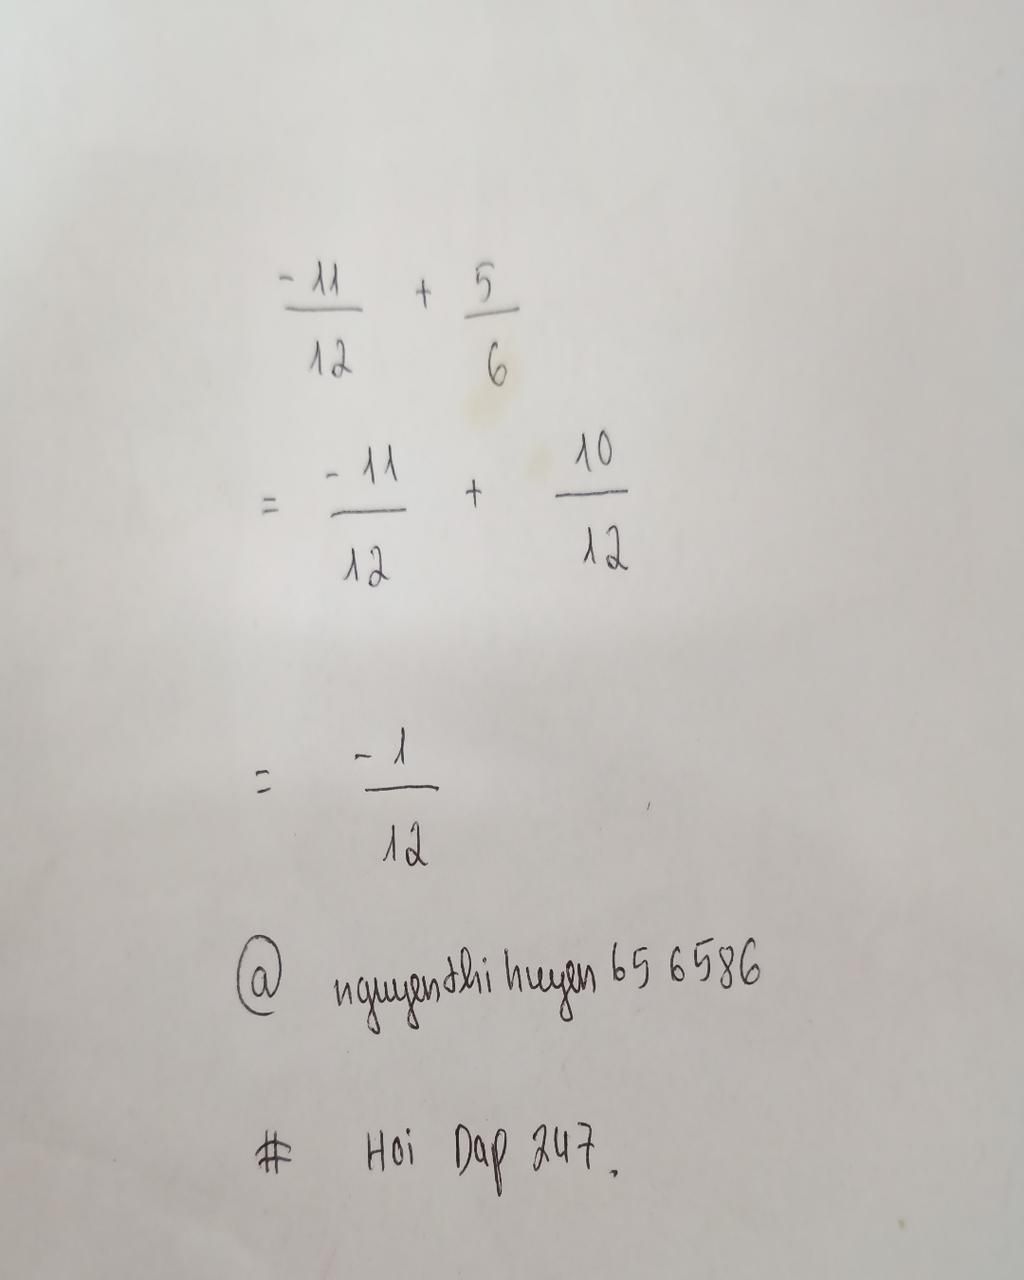 -11/12 + 5/6
= -11/12 + 10/12
= -1/12
@ nguyenthihuyen656586
# Hoi Dap 247.